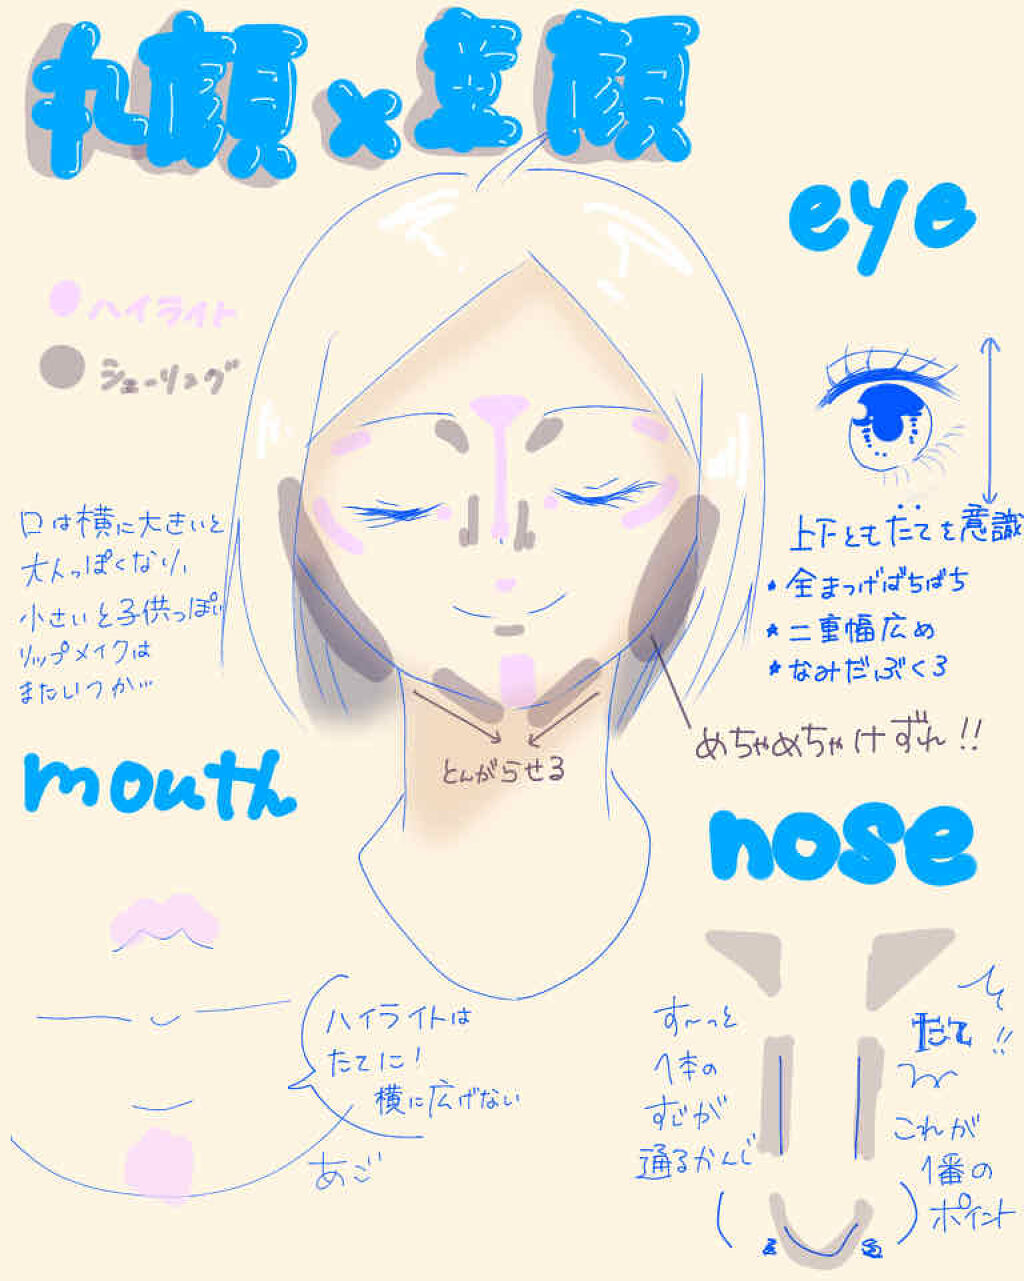 丸顔×童顔
eye
ハイライト
シェーリング
口は横に大きいと
大人っぽくなり、
小さいと子供っぽい
リップメイクは
またいつか…
上下ともたてを意識
★全まつげばちばち
★二重幅広め
★なみだぶくろ
めちゃめちゃけずれ!!
とんがらせる
mouth
nose
ハイライトは
たてに!
横に広げない
あご
す〜っと
1本の
すじが
通るかんじ
たて!!
これが
1番の
ポイント